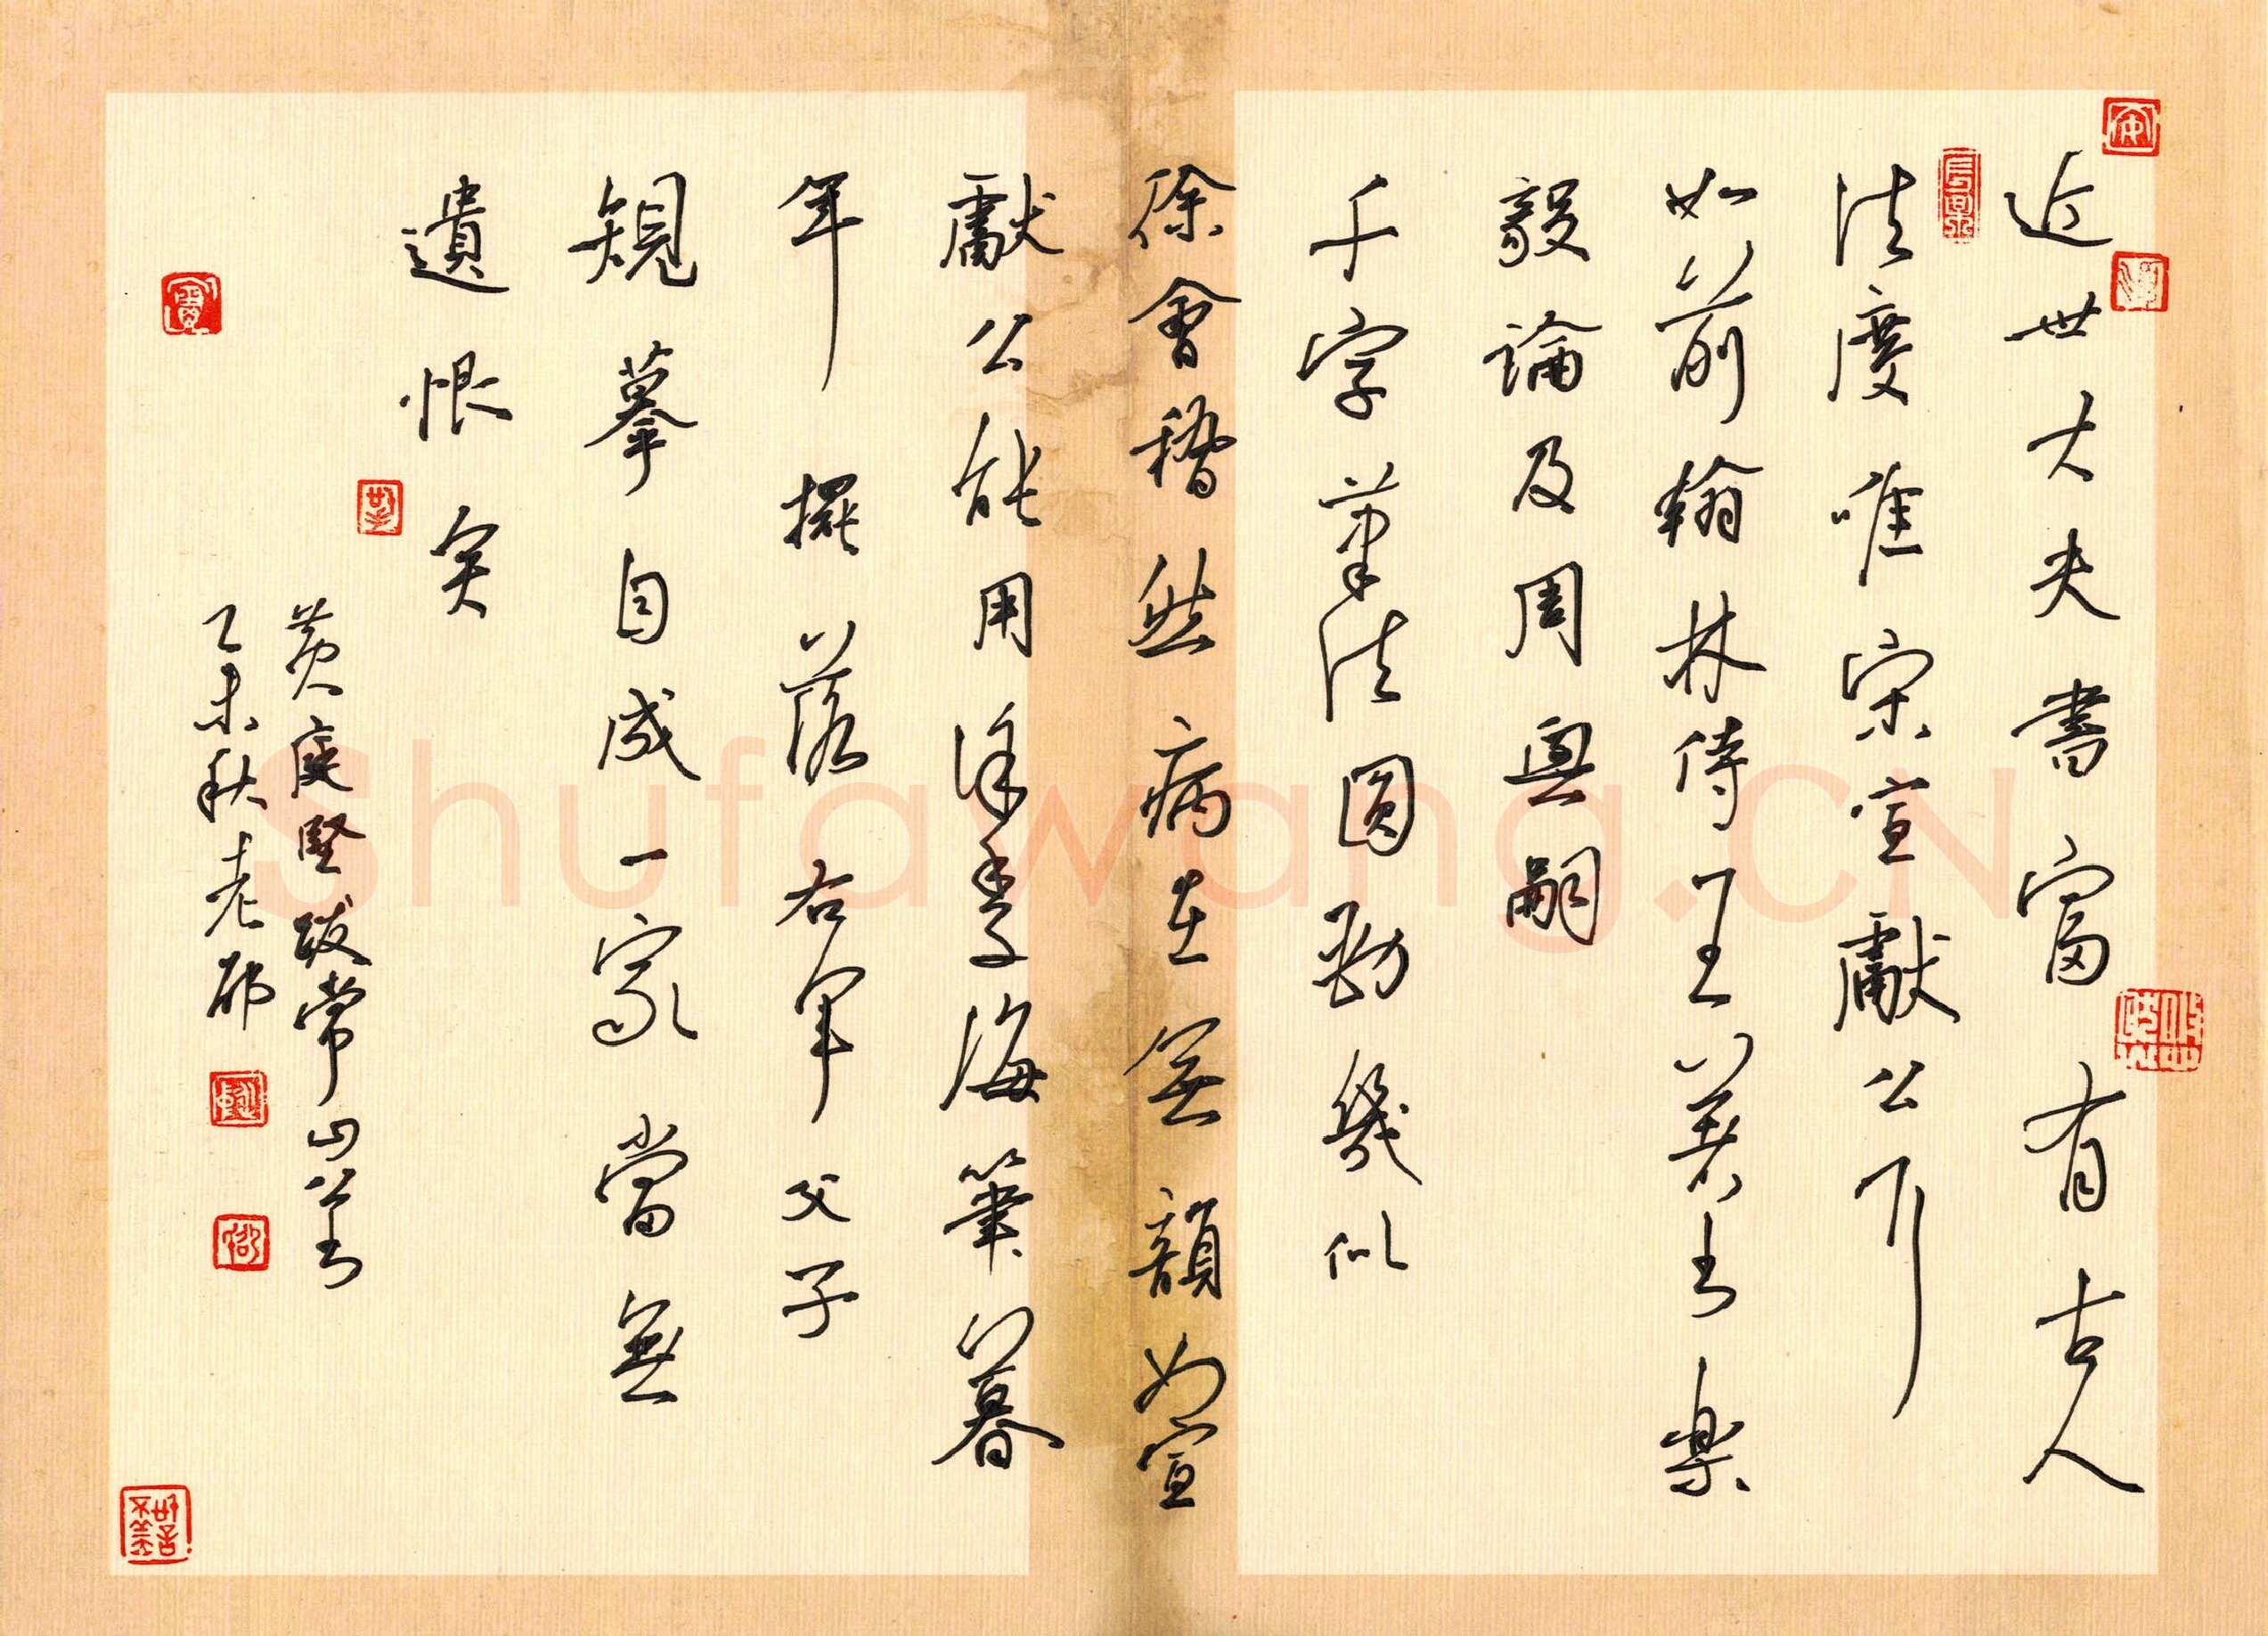 近世大夫書富有古人
法度唯宋宣獻公耳
如前翰林侍王著書樂
毅論及周興嗣
千字筆法圓勁幾似
徐會稽然病在無韻如宣
獻公能用徐季海筆暮
年擺落右軍父子
規摹自成一家當無
遺恨矣
黃庭堅跋常山公書
乙未秋老邵
Shufawang.CN